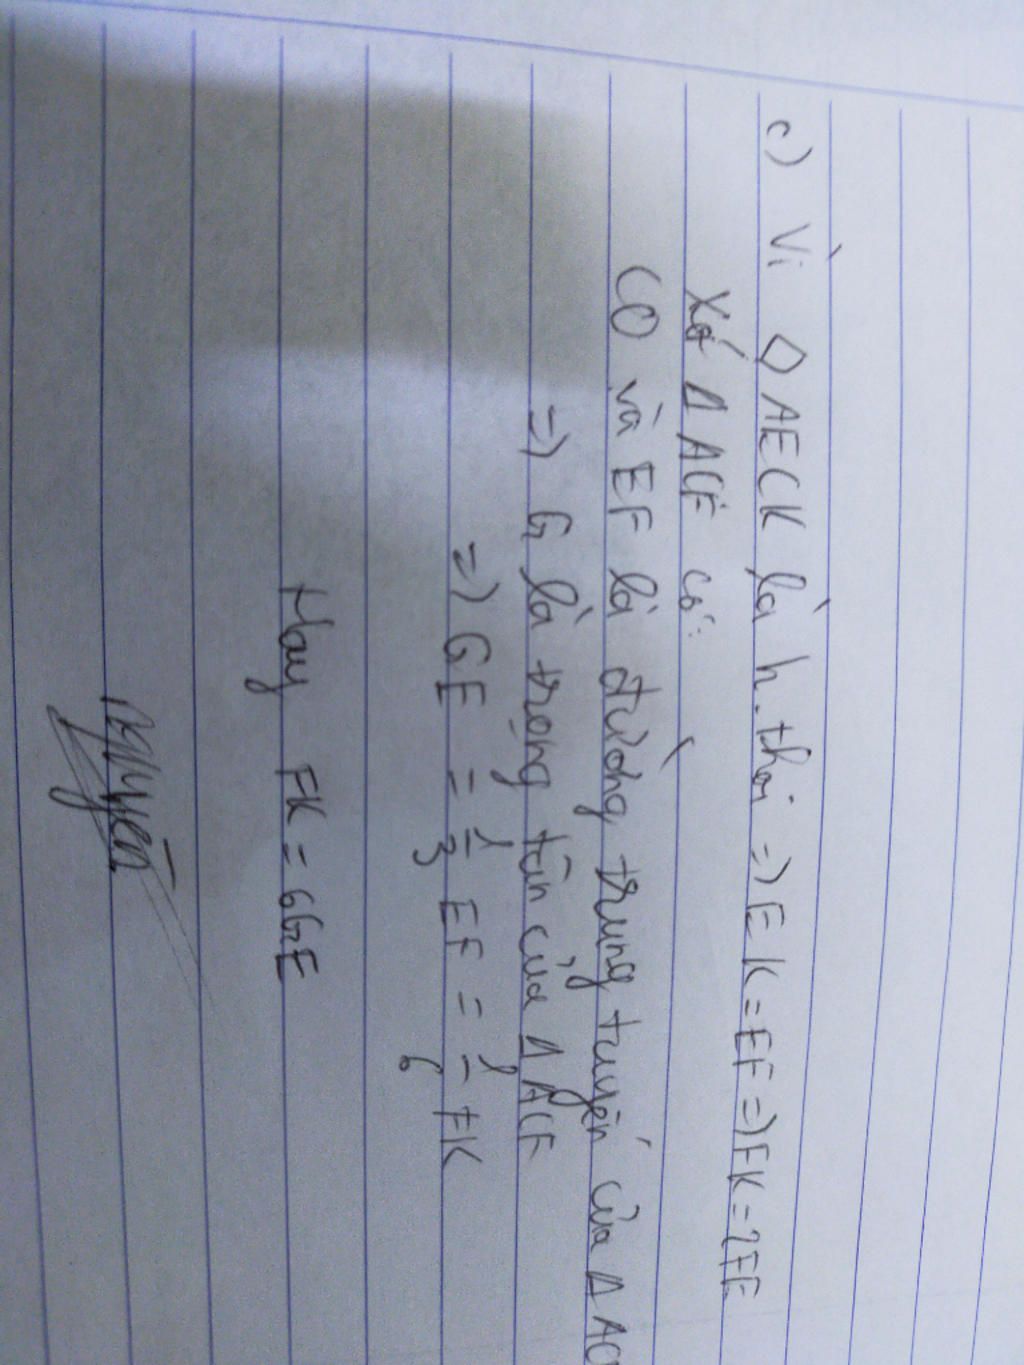 c) Vì ◇ AECK là h.thoi => EK = EF => FK = 2FE
Xét Δ ACF có:
CO và EF là đường trung tuyến của Δ AC
=> G là trọng tâm của Δ ACF
=> GE = 1/3 EF = 1/6 FK
Hay FK = 6GE
Nguyên